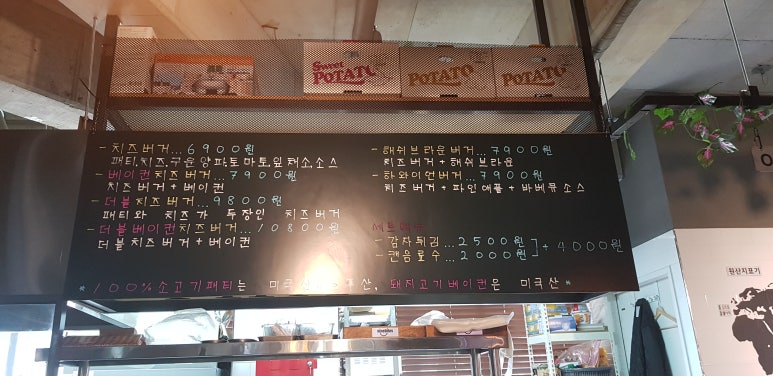 Sweet POTATO
POTATO
POTATO
- 치즈버거...6900원
패티,치즈,구운양파,토마토,잎채소,소스
- 베이컨치즈버거...7900원
치즈버거 + 베이컨
- 더블치즈버거...9800원
패티와 치즈가 두장인 치즈버거
- 더블베이컨치즈버거...10800원
더블치즈버거 + 베이컨
- 해쉬브라운버거...7900원
치즈버거 + 해쉬브라운
- 하와이언버거...7900원
치즈버거 + 파인애플 + 바베큐소스
세트메뉴
- 감자튀김...2500원
- 캔음료수...2000원
] + 4000원
* 100%소고기패티는 미국산 호주산, 돼지고기베이컨은 미국산 *
원산지표기